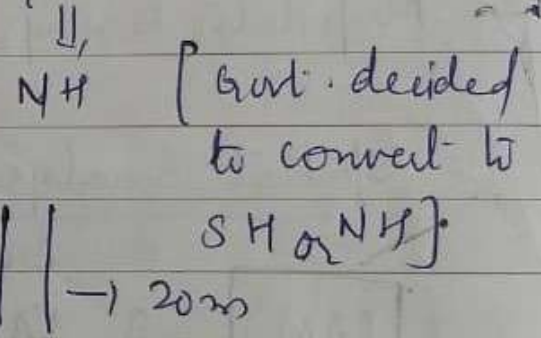 NH [Govt. decided
to convert to
SH or NH].
→ 20m